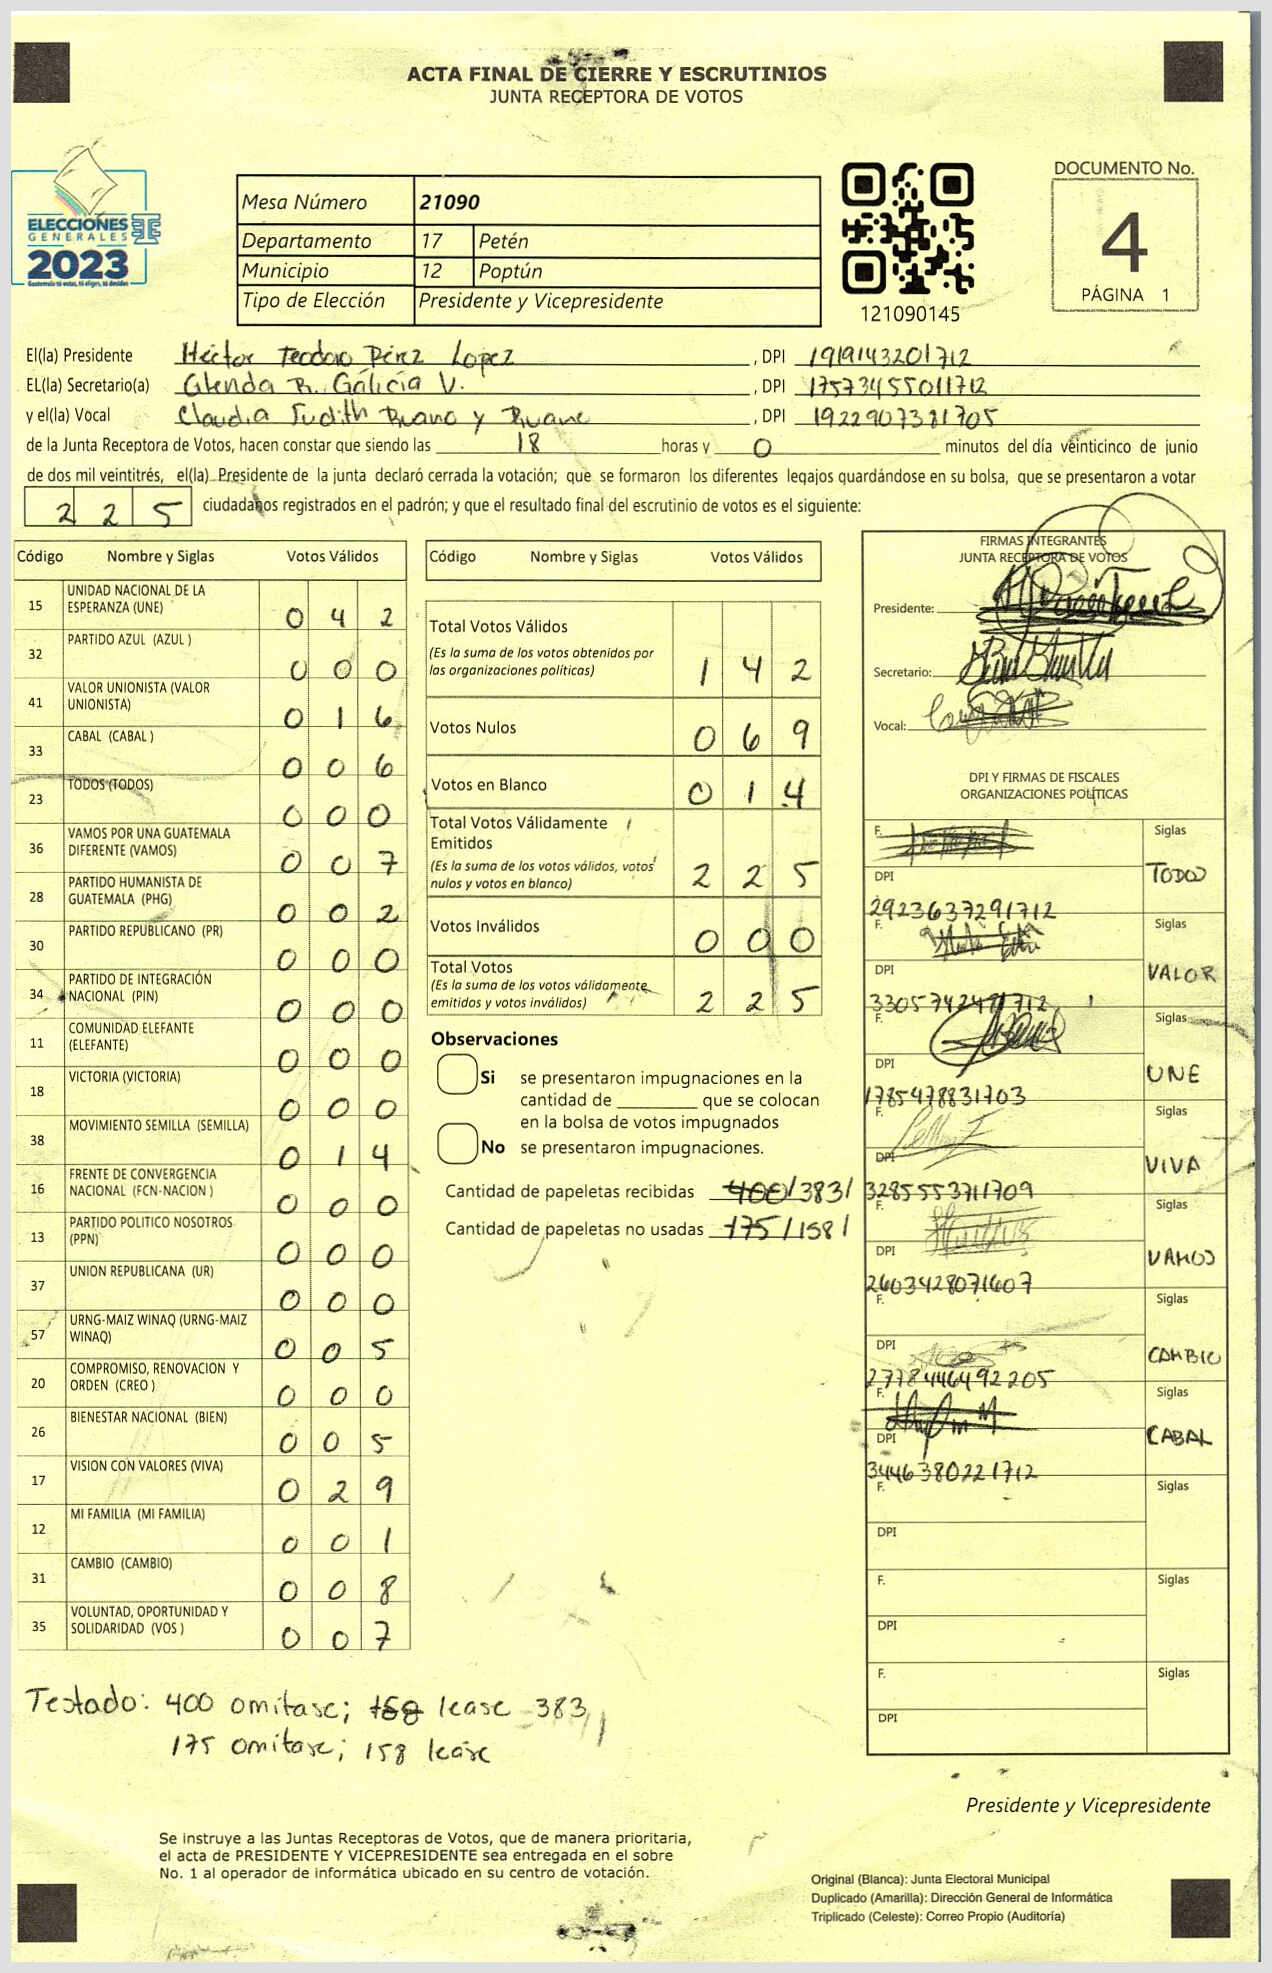 ACTA FINAL DE CIERRE Y ESCRUTINIOS
JUNTA RECEPTORA DE VOTOS
ELECCIONES
GENERALES
2023
Guatemala tú votas, tú eliges, tú decides
Mesa Número 21090
Departamento 17 Petén
Municipio 12 Poptún
Tipo de Elección Presidente y Vicepresidente
121090145
DOCUMENTO No.
4
PÁGINA 1
El(la) Presidente Héctor Teodoro Pérez Lopez, DPI 1919143201712
EL(la) Secretario(a) Glenda R. Galicia V., DPI 1757345501712
y el(la) Vocal Claudia Judith Ruano y Ruano, DPI 1922907381705
de la Junta Receptora de Votos, hacen constar que siendo las 18 horas y 0 minutos del día veinticinco de junio
de dos mil veintitrés, el(la) Presidente de la junta declaró cerrada la votación; que se formaron los diferentes legajos quardándose en su bolsa, que se presentaron a votar
225 ciudadanos registrados en el padrón; y que el resultado final del escrutinio de votos es el siguiente:
Código Nombre y Siglas Votos Válidos
15 UNIDAD NACIONAL DE LA ESPERANZA (UNE) 0 4 2
32 PARTIDO AZUL (AZUL ) 0 0 0
41 VALOR UNIONISTA (VALOR UNIONISTA) 0 1 6
33 CABAL (CABAL ) 0 0 6
23 TODOS (TODOS) 0 0 0
36 VAMOS POR UNA GUATEMALA DIFERENTE (VAMOS) 0 0 7
28 PARTIDO HUMANISTA DE GUATEMALA (PHG) 0 0 2
30 PARTIDO REPUBLICANO (PR) 0 0 0
34 PARTIDO DE INTEGRACIÓN NACIONAL (PIN) 0 0 0
11 COMUNIDAD ELEFANTE (ELEFANTE) 0 0 0
18 VICTORIA (VICTORIA) 0 0 0
38 MOVIMIENTO SEMILLA (SEMILLA) 0 1 4
16 FRENTE DE CONVERGENCIA NACIONAL (FCN-NACION ) 0 0 0
13 PARTIDO POLITICO NOSOTROS (PPN) 0 0 0
37 UNION REPUBLICANA (UR) 0 0 0
57 URNG-MAIZ WINAQ (URNG-MAIZ WINAQ) 0 0 5
20 COMPROMISO, RENOVACION Y ORDEN (CREO ) 0 0 0
26 BIENESTAR NACIONAL (BIEN) 0 0 5
17 VISION CON VALORES (VIVA) 0 2 9
12 MI FAMILIA (MI FAMILIA) 0 0 1
31 CAMBIO (CAMBIO) 0 0 8
35 VOLUNTAD, OPORTUNIDAD Y SOLIDARIDAD (VOS ) 0 0 7
Código Nombre y Siglas Votos Válidos
Total Votos Válidos 1 4 2
(Es la suma de los votos obtenidos por
las organizaciones políticas)
Votos Nulos 0 6 9
Votos en Blanco 0 1 4
Total Votos Válidamente
Emitidos 2 2 5
(Es la suma de los votos válidos, votos
nulos y votos en blanco)
Votos Inválidos 0 0 0
Total Votos 2 2 5
(Es la suma de los votos válidamente
emitidos y votos inválidos)
Observaciones
Si se presentaron impugnaciones en la
cantidad de ________ que se colocan
en la bolsa de votos impugnados
No se presentaron impugnaciones.
Cantidad de papeletas recibidas 400/383/
Cantidad de papeletas no usadas 175/158/
FIRMAS INTEGRANTES
JUNTA RECEPTORA DE VOTOS
Presidente:
Secretario:
Vocal:
DPI Y FIRMAS DE FISCALES
ORGANIZACIONES POLÍTICAS
F. Siglas
DPI TODOS
2923637291712
F. Siglas
DPI VALOR
F. Siglas
DPI UNE
1785478831703
F. Siglas
DPI VIVA
3285553711709
F. Siglas
DPI VAMOS
2603428071607
F. Siglas
DPI CAMBIO
2778446492205
F. Siglas
DPI CABAL
3446380221712
F. Siglas
DPI
F. Siglas
DPI
F. Siglas
DPI
Testado: 400 omitase; 158 lease 383
175 omitase; 158 lease
Presidente y Vicepresidente
Se instruye a las Juntas Receptoras de Votos, que de manera prioritaria,
el acta de PRESIDENTE Y VICEPRESIDENTE sea entregada en el sobre
No. 1 al operador de informática ubicado en su centro de votación.
Original (Blanca): Junta Electoral Municipal
Duplicado (Amarilla): Dirección General de Informática
Triplicado (Celeste): Correo Propio (Auditoría)